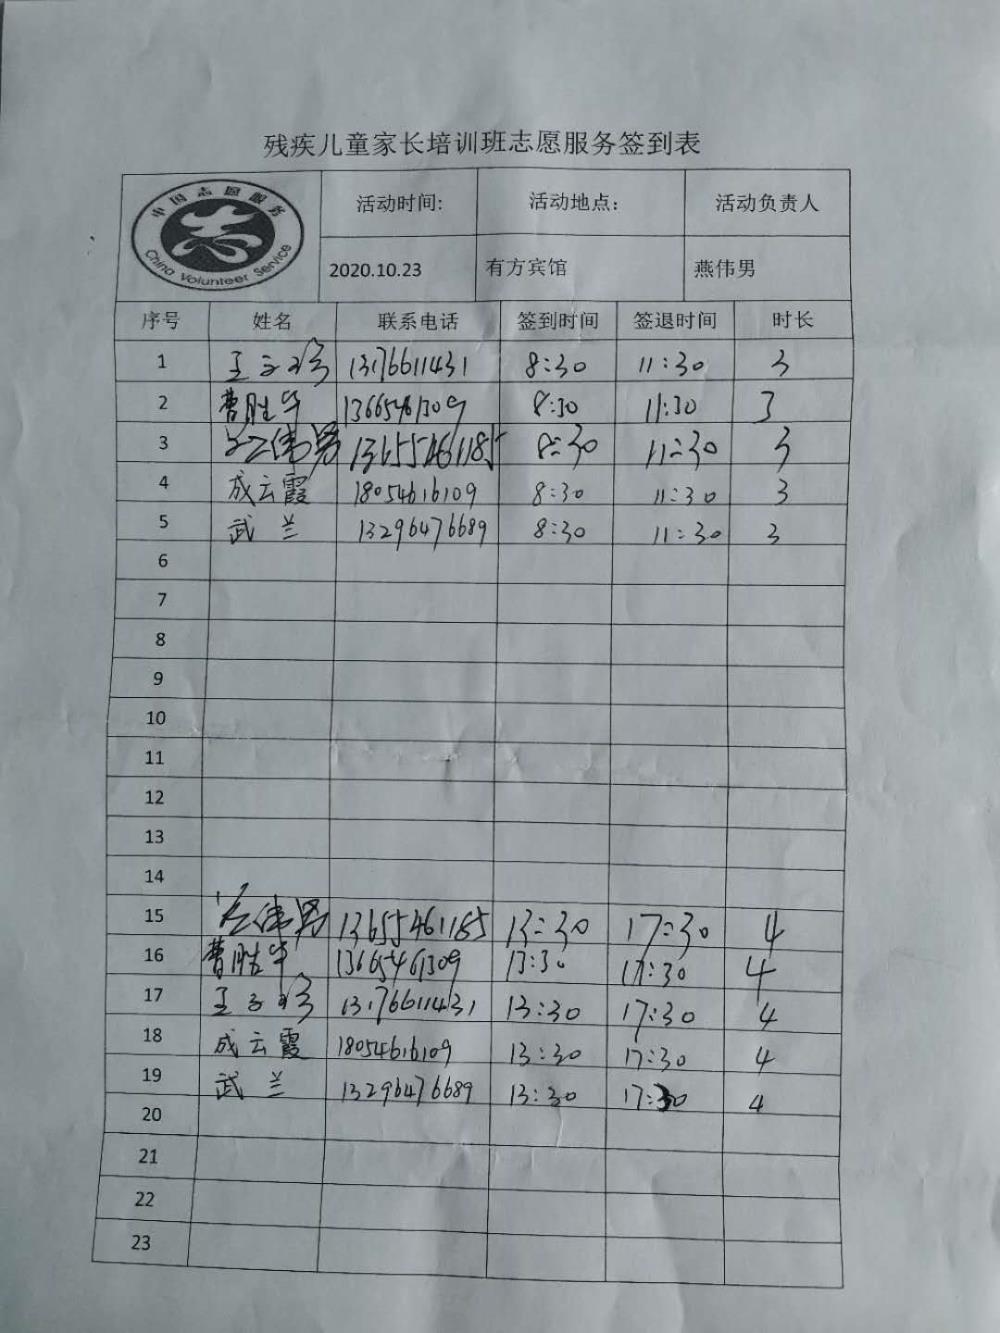 残疾儿童家长培训班志愿服务签到表
中国志愿服务
China Volunteer Service
活动时间: 活动地点: 活动负责人
2020.10.23 有方宾馆 燕伟男
序号 姓名 联系电话 签到时间 签退时间 时长
1 王 13176611431 8:30 11:30 3
2 曹胜华 13665461309 8:30 11:30 3
3 伟男 13655461185 8:30 11:30 3
4 成云霞 18054616109 8:30 11:30 3
5 武兰 13296476689 8:30 11:30 3
6
7
8
9
10
11
12
13
14
15 伟男 13655461185 13:30 17:30 4
16 曹胜华 13665461309 13:30 17:30 4
17 王 13176611431 13:30 17:30 4
18 成云霞 18054616109 13:30 17:30 4
19 武兰 13296476689 13:30 17:30 4
20
21
22
23